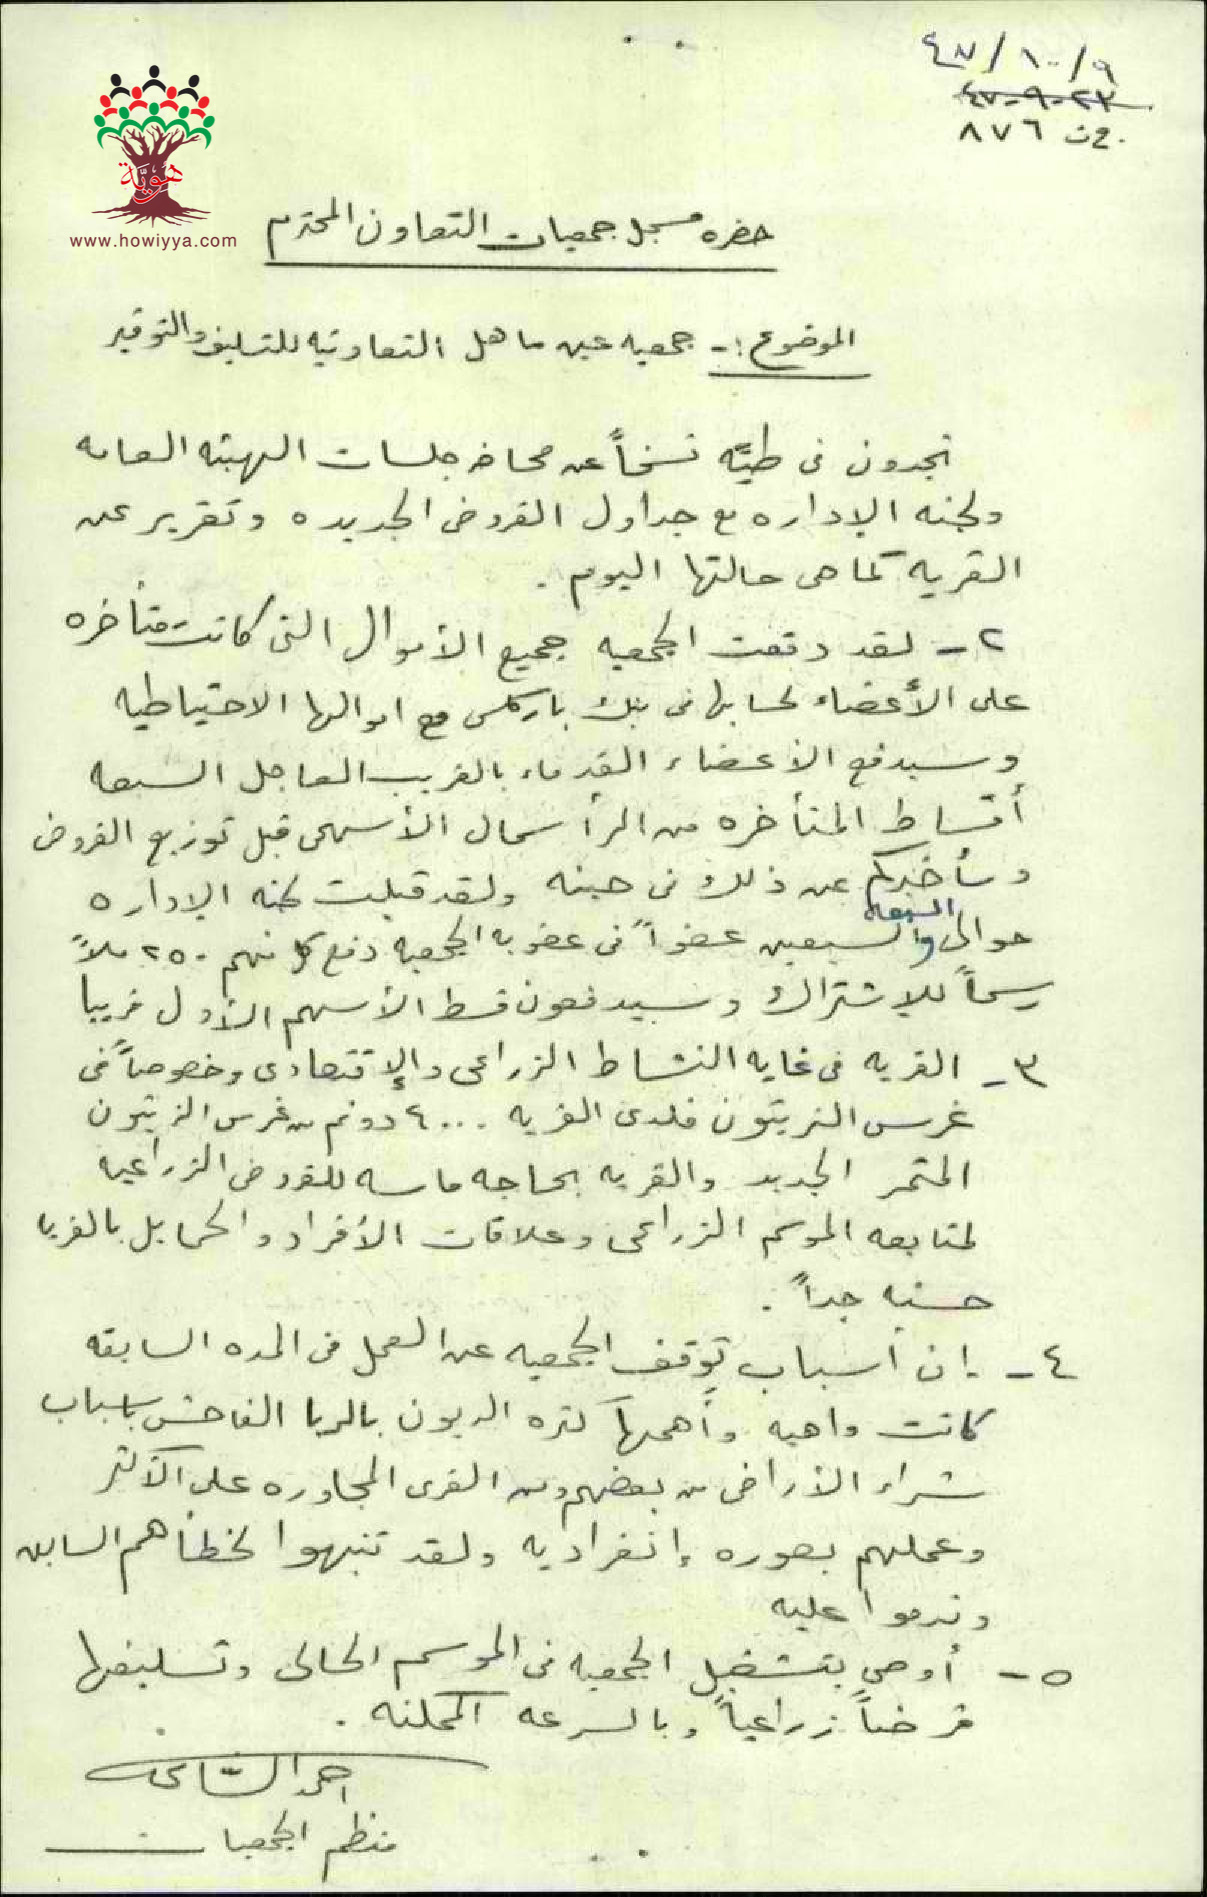 ٤٧/١٠/٩
٤٧-٩-٢٣
ج ت ٨٧٦
هوية
www.howiyya.com
حضره مسجل جمعيات التعاون المحترم
الموضوع :- جمعيه عين ماهل التعاونيه للتسليف والتوفير
تجدون فى طيّه نسخاً عن محاضر جلسات الهيئه العامه
ولجنه الإداره مع جداول القروض الجديده وتقرير عن
القريه كما هى حالتها اليوم .
٢ - لقد دفعت الجمعيه جميع الأموال التى كانت متأخره
على الأعضاء لحسابها فى بنك باركلس مع اموالها الاحتياطيه
وسيدفع الأعضاء القدماء بالقريب العاجل السبعه
أقساط المتأخره من الرأسمال الأسهمى قبل توزيع القروض
وسأخبركم عن ذلك فى حينه ولقد قبلت لجنه الإداره
السبعه
حوالى والسبعين عضواً فى عضويه الجمعيه دفع كل منهم ٢٥٠ ملاً
رسماً للإشتراك وسيدفعون قسط الأسهم الأول قريبا
٣ - القريه فى غايه النشاط الزراعى والإقتصادى وخصوصاً فى
غرس الزيتون فلدى القريه ٤٠٠٠ دونم من غرس الزيتون
المثمر الجديد والقريه بحاجه ماسه للقروض الزراعيه
لمتابعه الموسم الزراعى وعلاقات الأفراد والحمايل بالقريه
حسنه جداً .
٤ - إن أسباب توقف الجمعيه عن العمل فى المده السابقه
كانت واهيه وأهمها كثره الديون بالربا الفاحش بأسباب
شراء الأراضى من بعضهم ومن القرى المجاوره على الأكثر
وعملهم بصوره إنفراديه ولقد تنبهوا لخطأهم السابق
وندموا عليه
٥ - أوصى بتشغيل الجمعيه فى الموسم الحالى وتسليفها
قرضاً زراعياً وبالسرعه الممكنه .
احمد
منظم الجمعيات